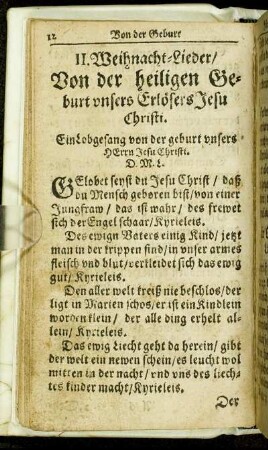 12 Von der Geburt
II. Weihnacht-Lieder/
Von der heiligen Ge-
burt vnsers Erlösers Jesu
Christi.
Ein Lobgesang von der geburt vnsers
HErrn Jesu Christi.
D. M. L.
GElobet seyst du Jesu Christ / daß
du Mensch geboren bist / von einer
Jungfraw / das ist wahr / des frewet
sich der Engel schaar / Kyrieleis.
Des ewign Vaters einig Kind / jetzt
man in der krippen find / in vnser armes
fleisch vnd blut / verkleidet sich das ewig
gut / Kyrieleis.
Den aller welt kreiß nie beschlos / der
ligt in Marien schos / er ist ein Kindlein
worden klein / der alle ding erhelt al-
lein / Kyrieleis.
Das ewig Liecht geht da herein / gibt
der welt ein newen schein / es leucht wol
mitten in der nacht / vnd vns des liech-
tes kinder macht / Kyrieleis.
Der